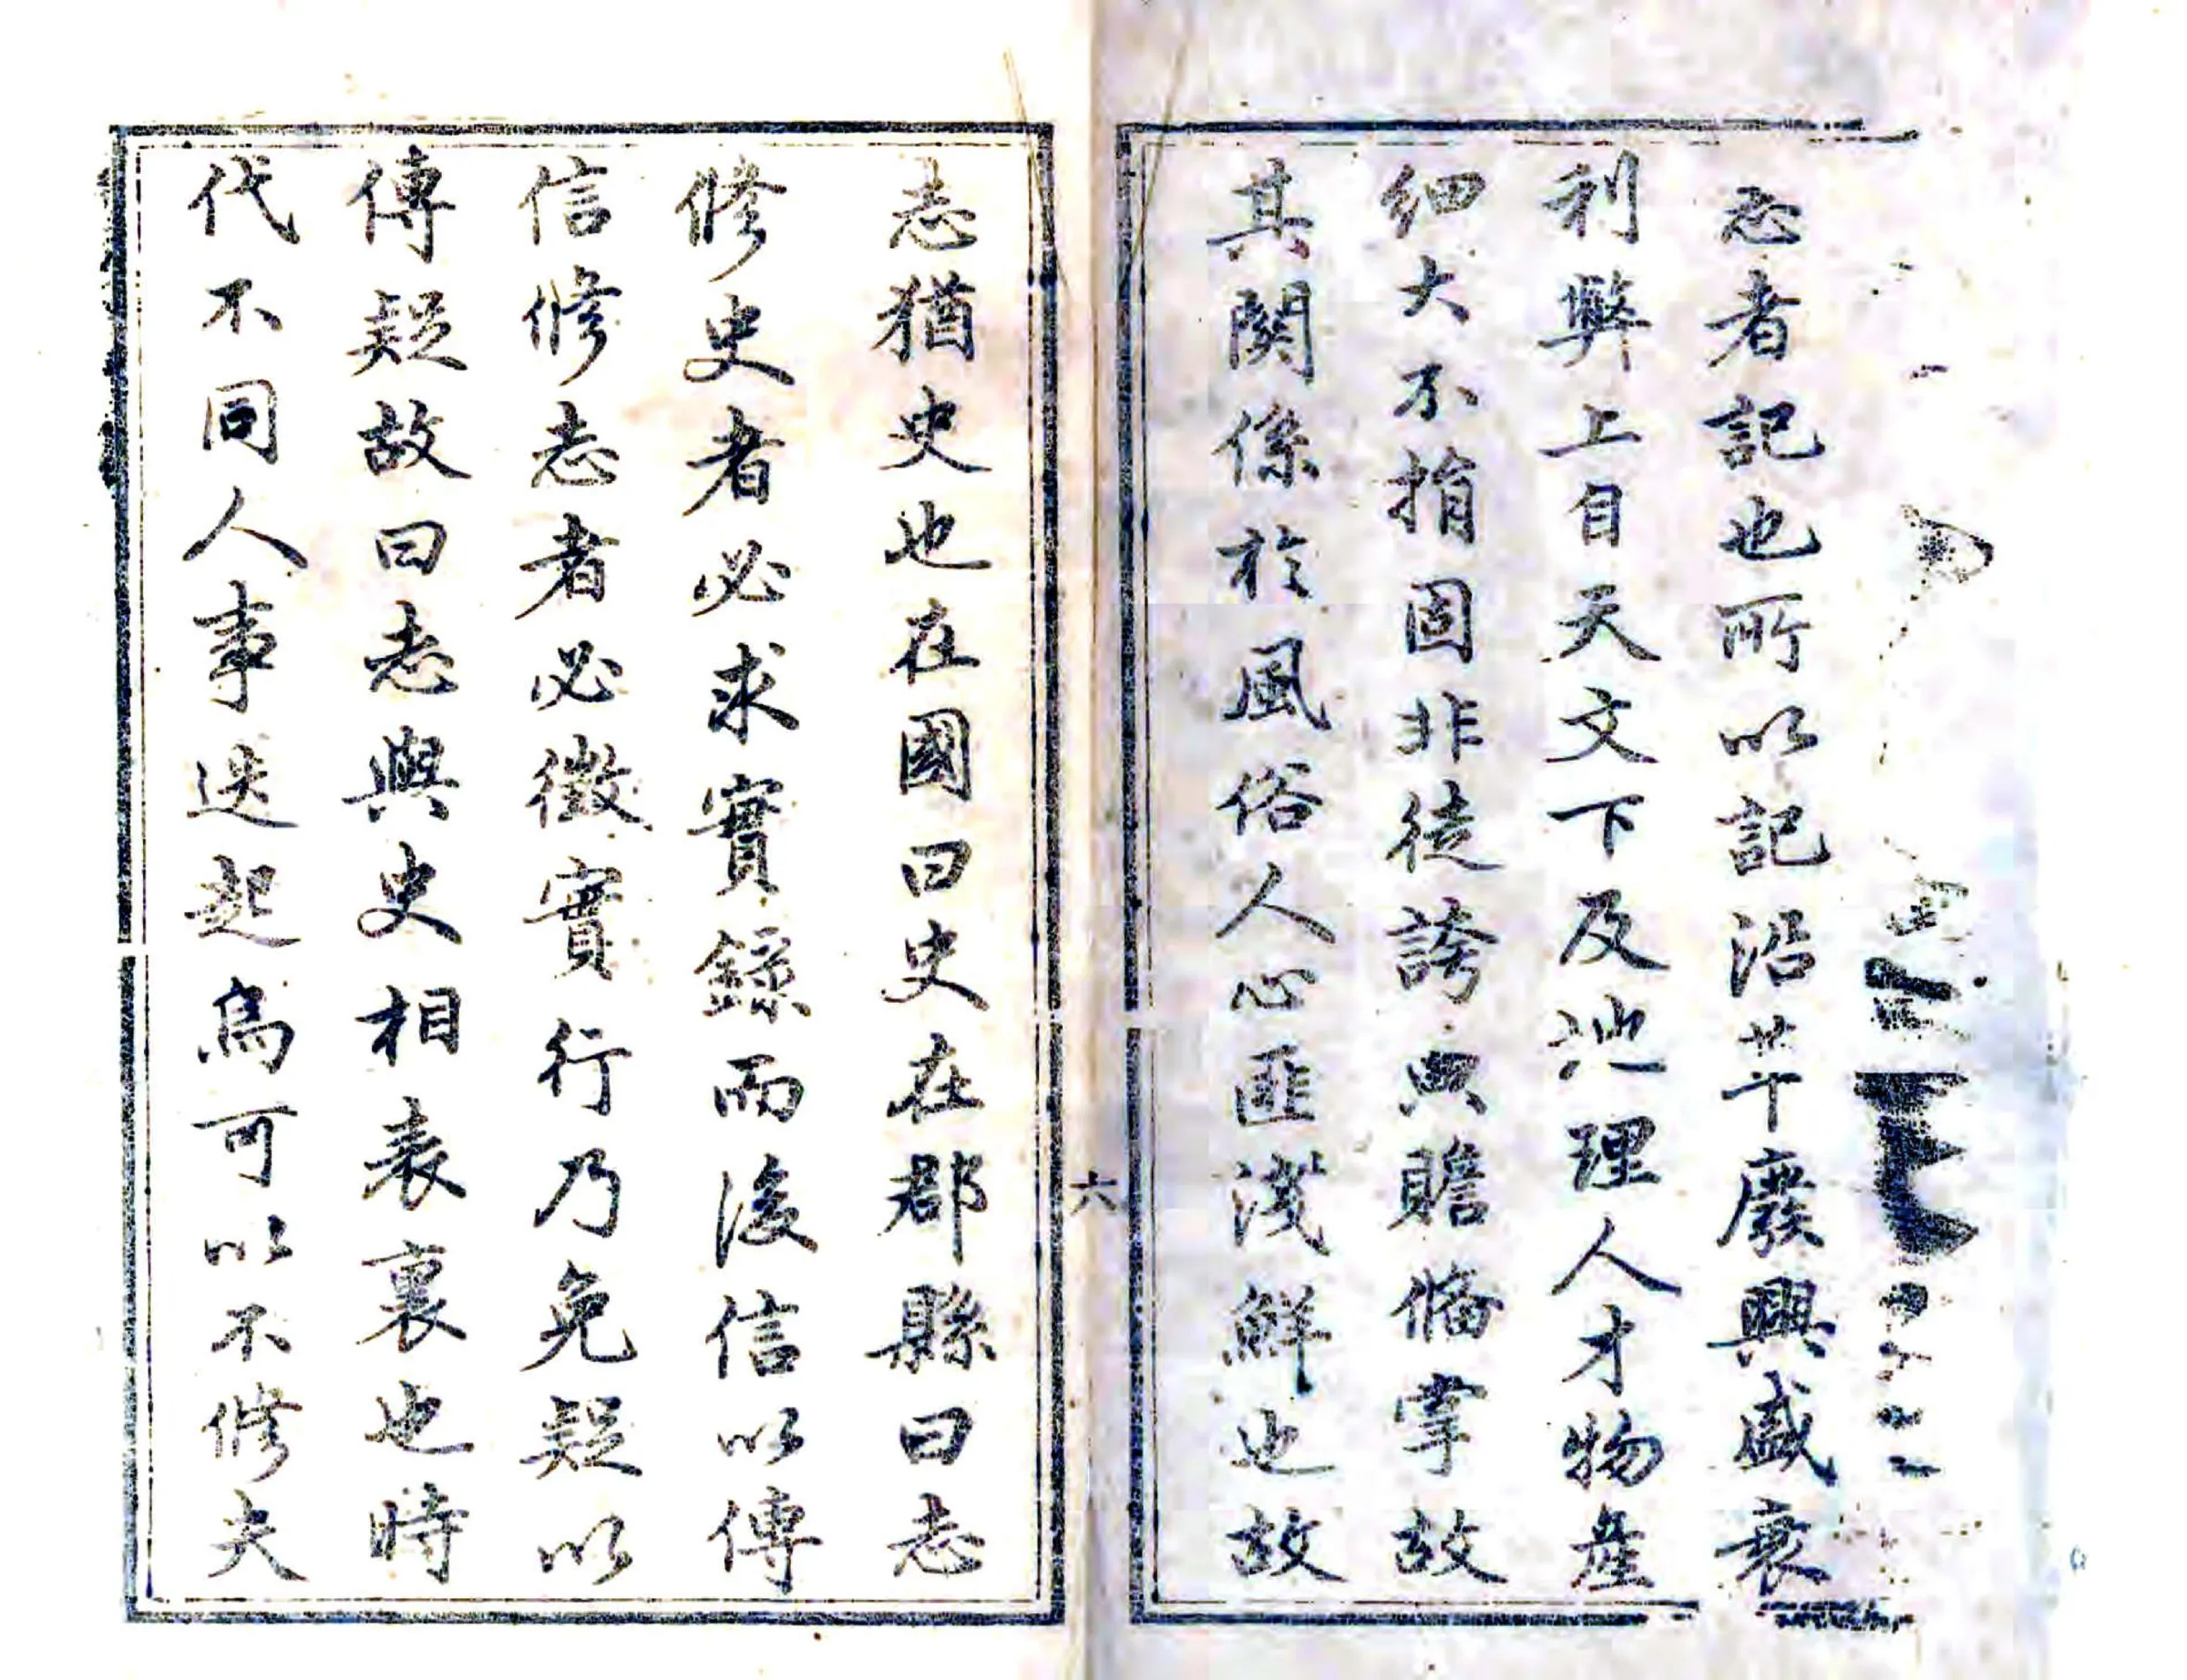 志者記也所以記沿革廢興盛衰
利弊上自天文下及地理人才物產
細大不捐固非徒誇典贍備掌故
其關係於風俗人心匪淺鮮也故
六
志猶史也在國曰史在郡縣曰志
修史者必求實錄而後信以傳
信修志者必徵實行乃免疑以
傳疑故曰志與史相表裏也時
代不同人事迭起烏可以不修夫